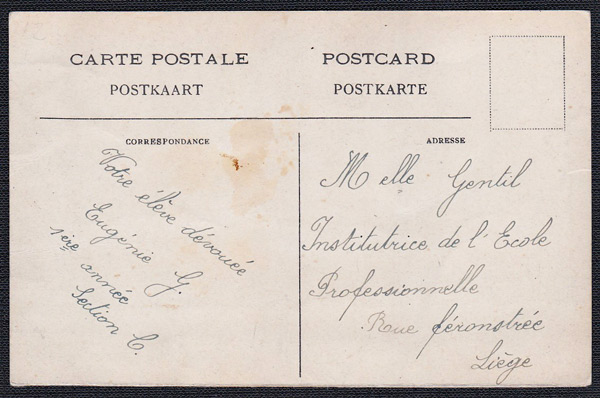 CARTE POSTALE
POSTCARD
POSTKAART
POSTKARTE
CORRESPONDANCE
ADRESSE
Votre élève dévouée
Eugénie G.
1ière année
Section C.
Melle Gentil
Institutrice de l'Ecole
Professionnelle
Rue féronstrée
Liège